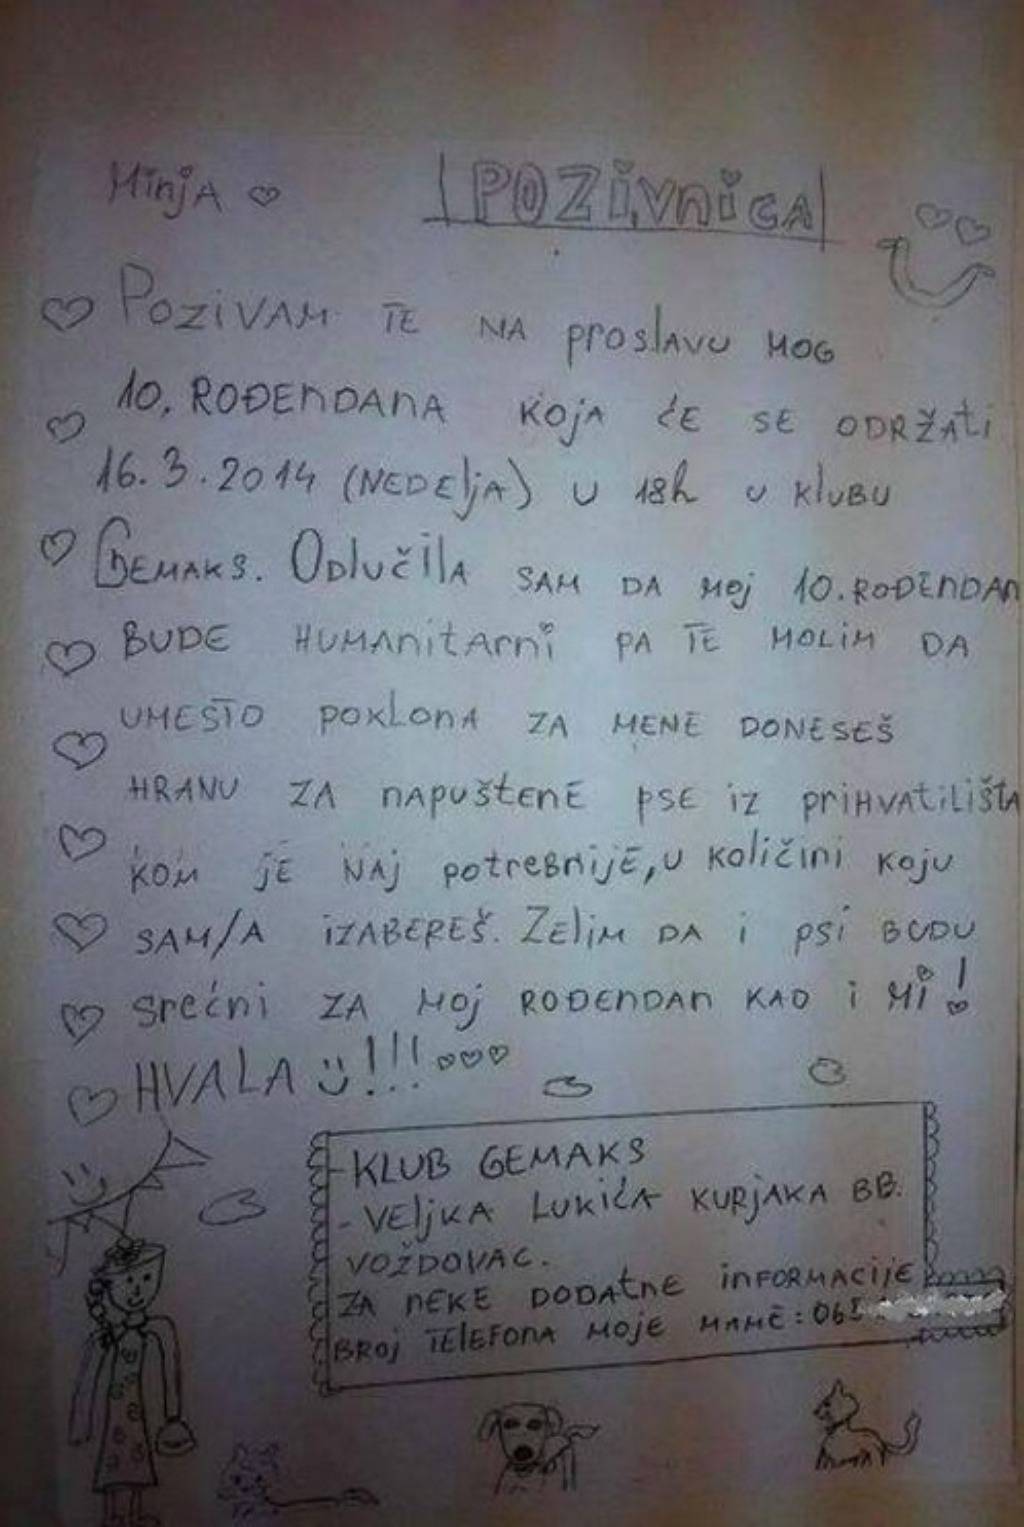 Minja
POZiVniCA
POZiVAM TE NA proslavu MOG
10. ROĐENDANA KOJA ĆE SE ODRŽAti
16.3.2014 (NEDElJA) U 18h U KlUBU
GEMAKS. OdlučilA SAM DA MOJ 10. ROĐENDAN
BUDE HUMAnitArni PA TE MOLIM DA
UMESTO POKLONA ZA MENE DONESEŠ
HRANU ZA nApuštenE PSE iZ priHVAtilištA
KOM JE NAJ potreBnijE, U Količini KOJU
SAM/A iZABEREŠ. ZElim DA i PSi BUDU
SREĆni ZA MOJ ROĐENDAN KAO i Mi!
HVALA !!!
-KLUB GEMAKS
-VElJKA LUKIĆA KURJAKA BB.
VOŽDOVAC.
ZA NEKE DODAtnE inFORMACIJE
BROJ TElEFONA MOJE MAME: 065